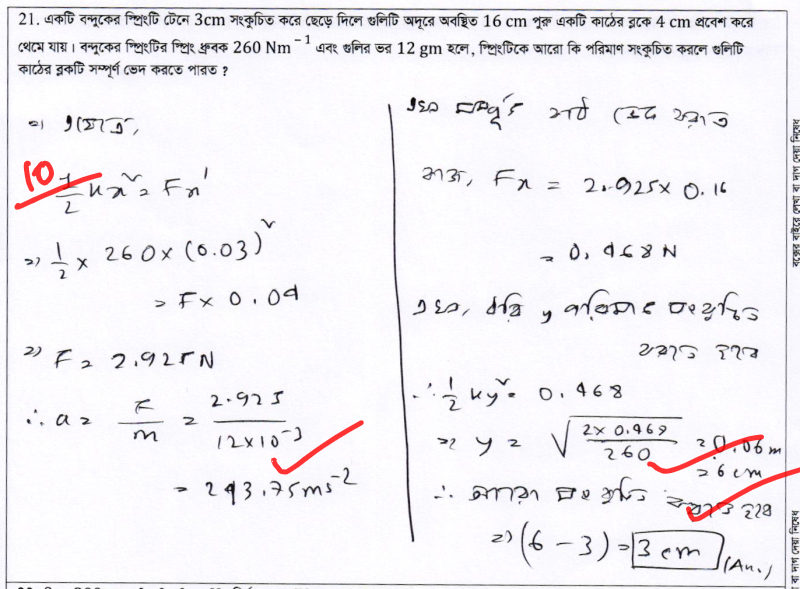 21. একটি বন্দুকের স্প্রিংটি টেনে 3cm সংকুচিত করে ছেড়ে দিলে গুলিটি অদূরে অবস্থিত 16 cm পুরু একটি কাঠের ব্লকে 4 cm প্রবেশ করে
থেমে যায়। বন্দুকের স্প্রিংটির স্প্রিং ধ্রুবক 260 Nm⁻¹ এবং গুলির ভর 12 gm হলে, স্প্রিংটিকে আরো কি পরিমাণ সংকুচিত করলে গুলিটি
কাঠের ব্লকটি সম্পূর্ণ ভেদ করতে পারত ?
এখানে,
10
1/2 kx² = Fx'
=> 1/2 × 260 × (0.03)²
= F × 0.04
=> F = 2.925N
∴ a = F/m = 2.925/12×10⁻³
= 243.75 ms⁻²
এখন সম্পূর্ণ কাঠ ভেদ করতে
কাজ, Fx = 2.925 × 0.16
= 0.468 N
এখন, যদি y পরিমাণ সংকুচিত
করতে হবে
∴ 1/2 ky² = 0.468
=> y = √(2×0.468/260) = 0.06 m
= 6 cm
∴ আরো সংকুচিত করতে হবে
=> (6 - 3) = 3 cm (Ans.)
বক্সের বাইরে লেখা বা দাগ দেয়া নিষেধ
বা দাগ দেয়া নিষেধ